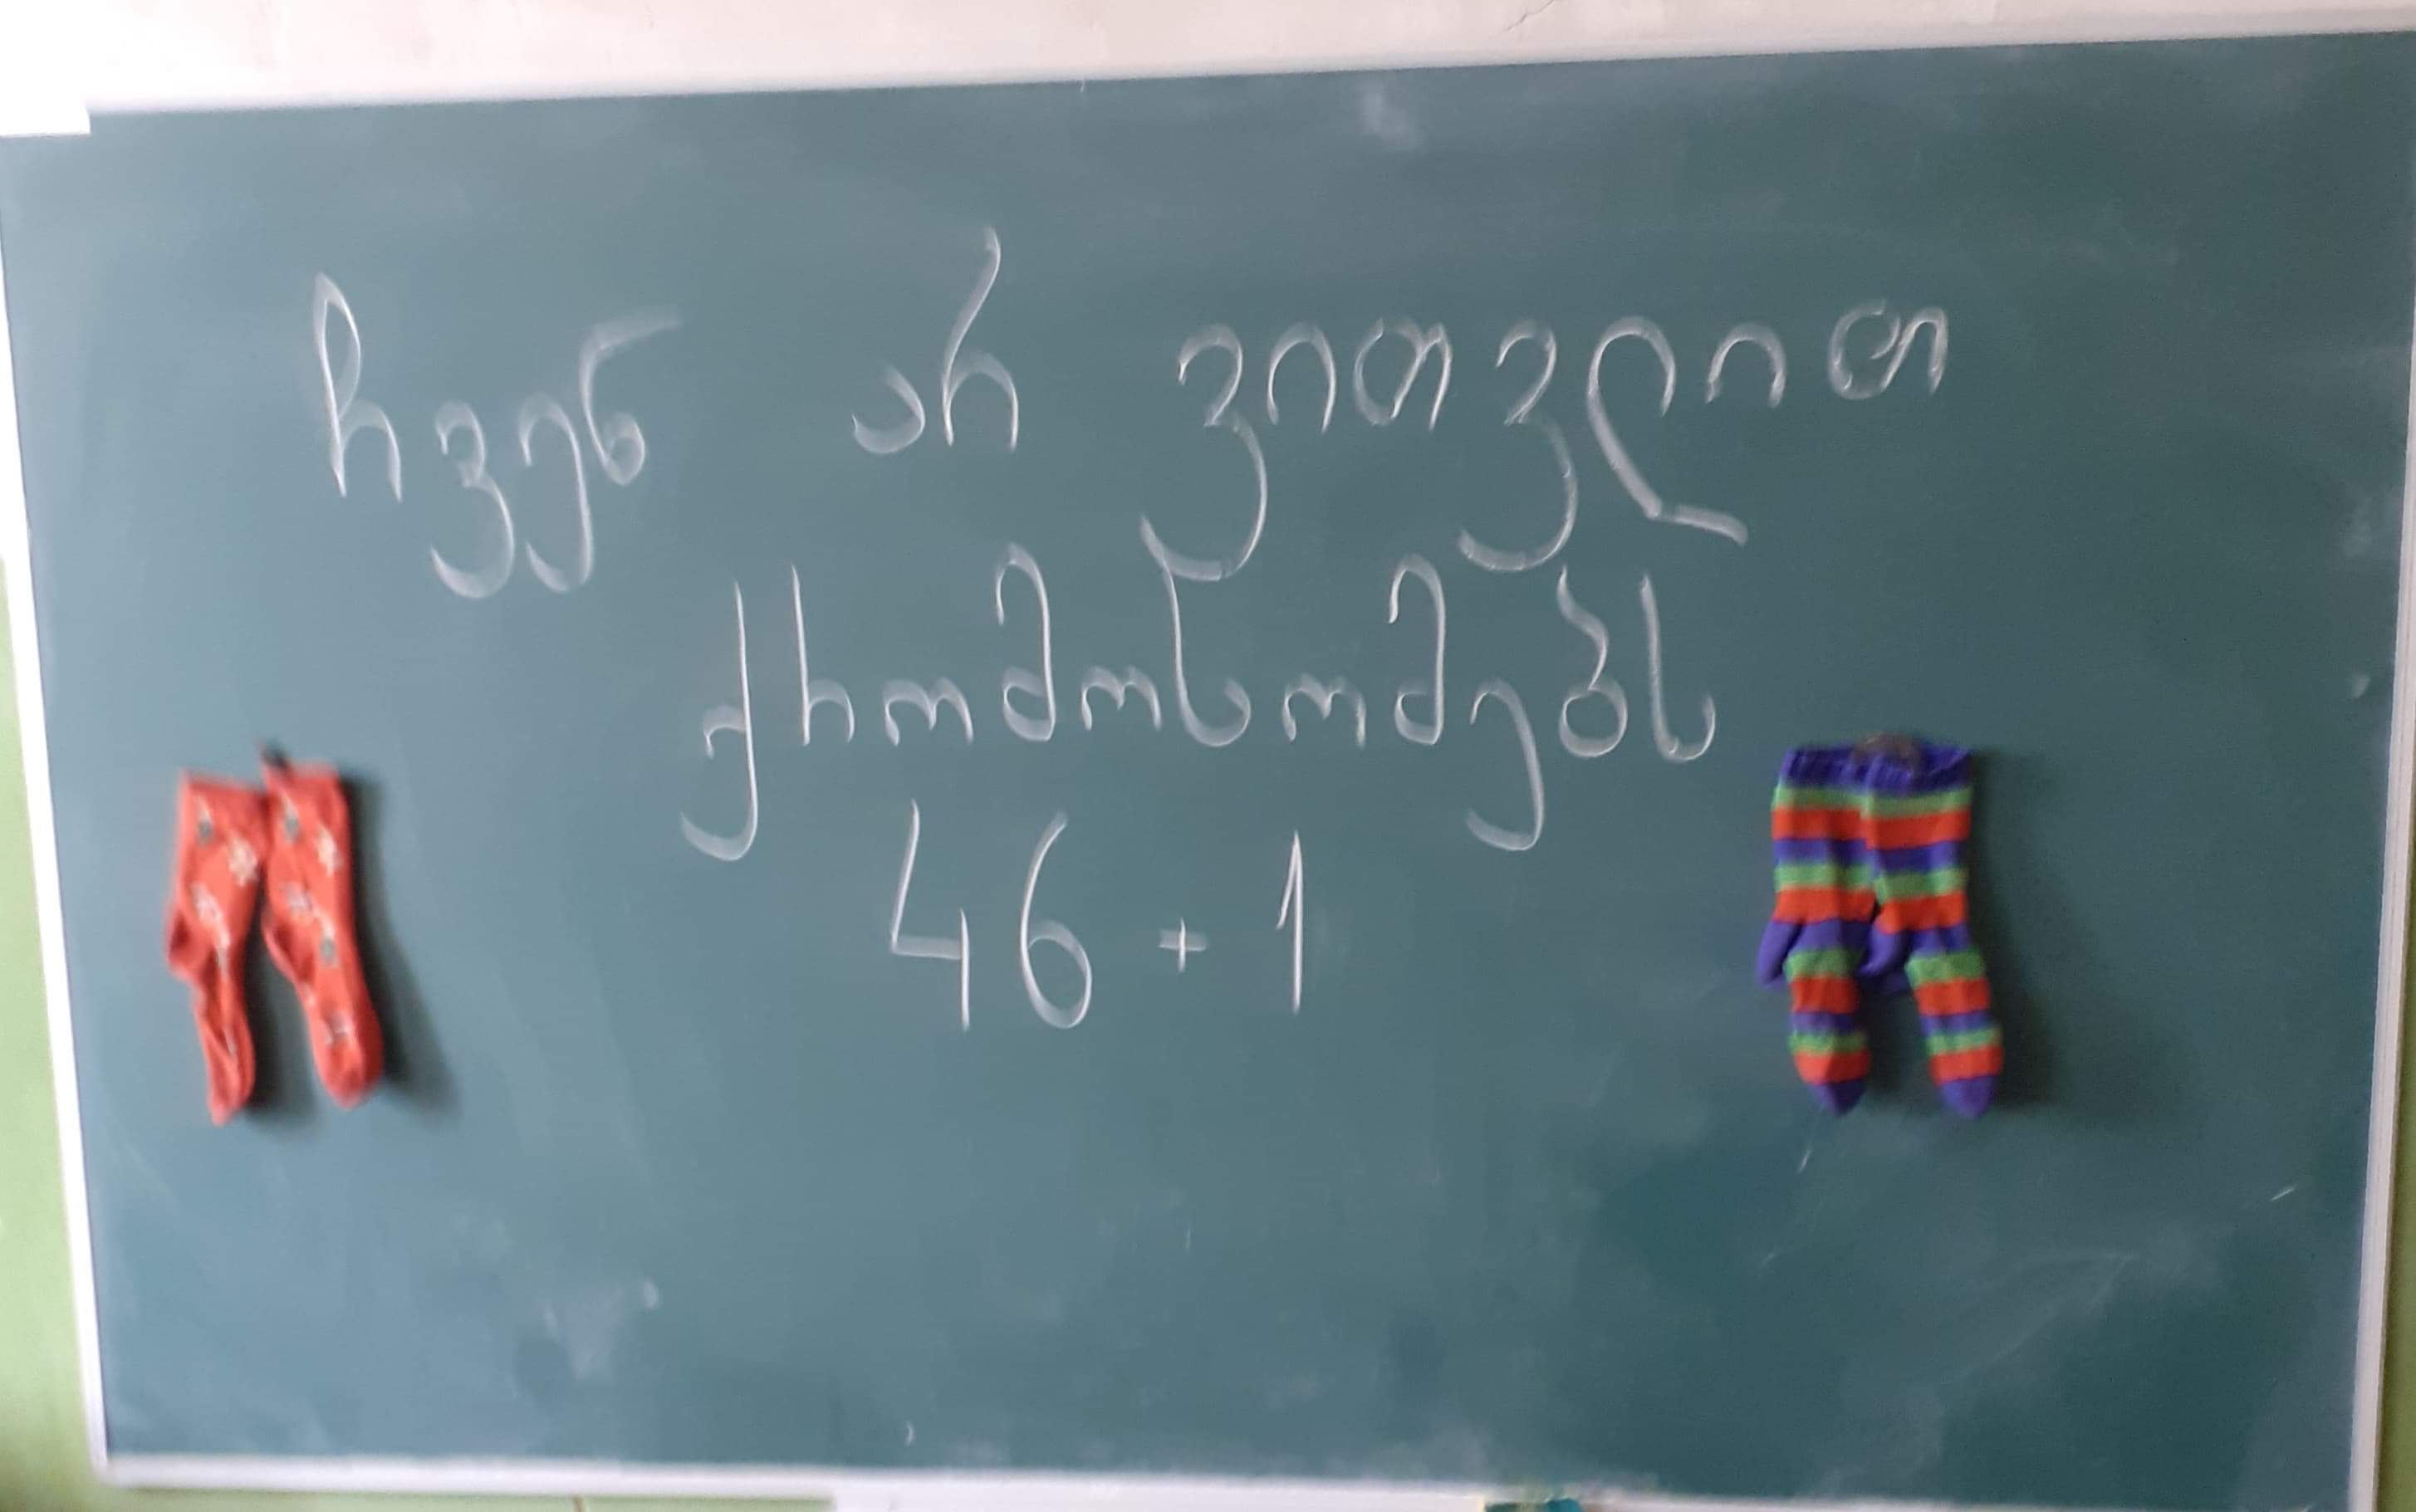 ჩვენ არ ვითვლით
ქრომოსომებს
46 + 1